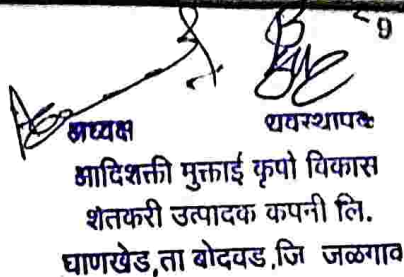 9
अध्यक्ष व्यवस्थापक
आदिशक्ती मुक्ताई कृषी विकास
शेतकरी उत्पादक कंपनी लि.
घाणखेड,ता बोदवड,जि जळगाव